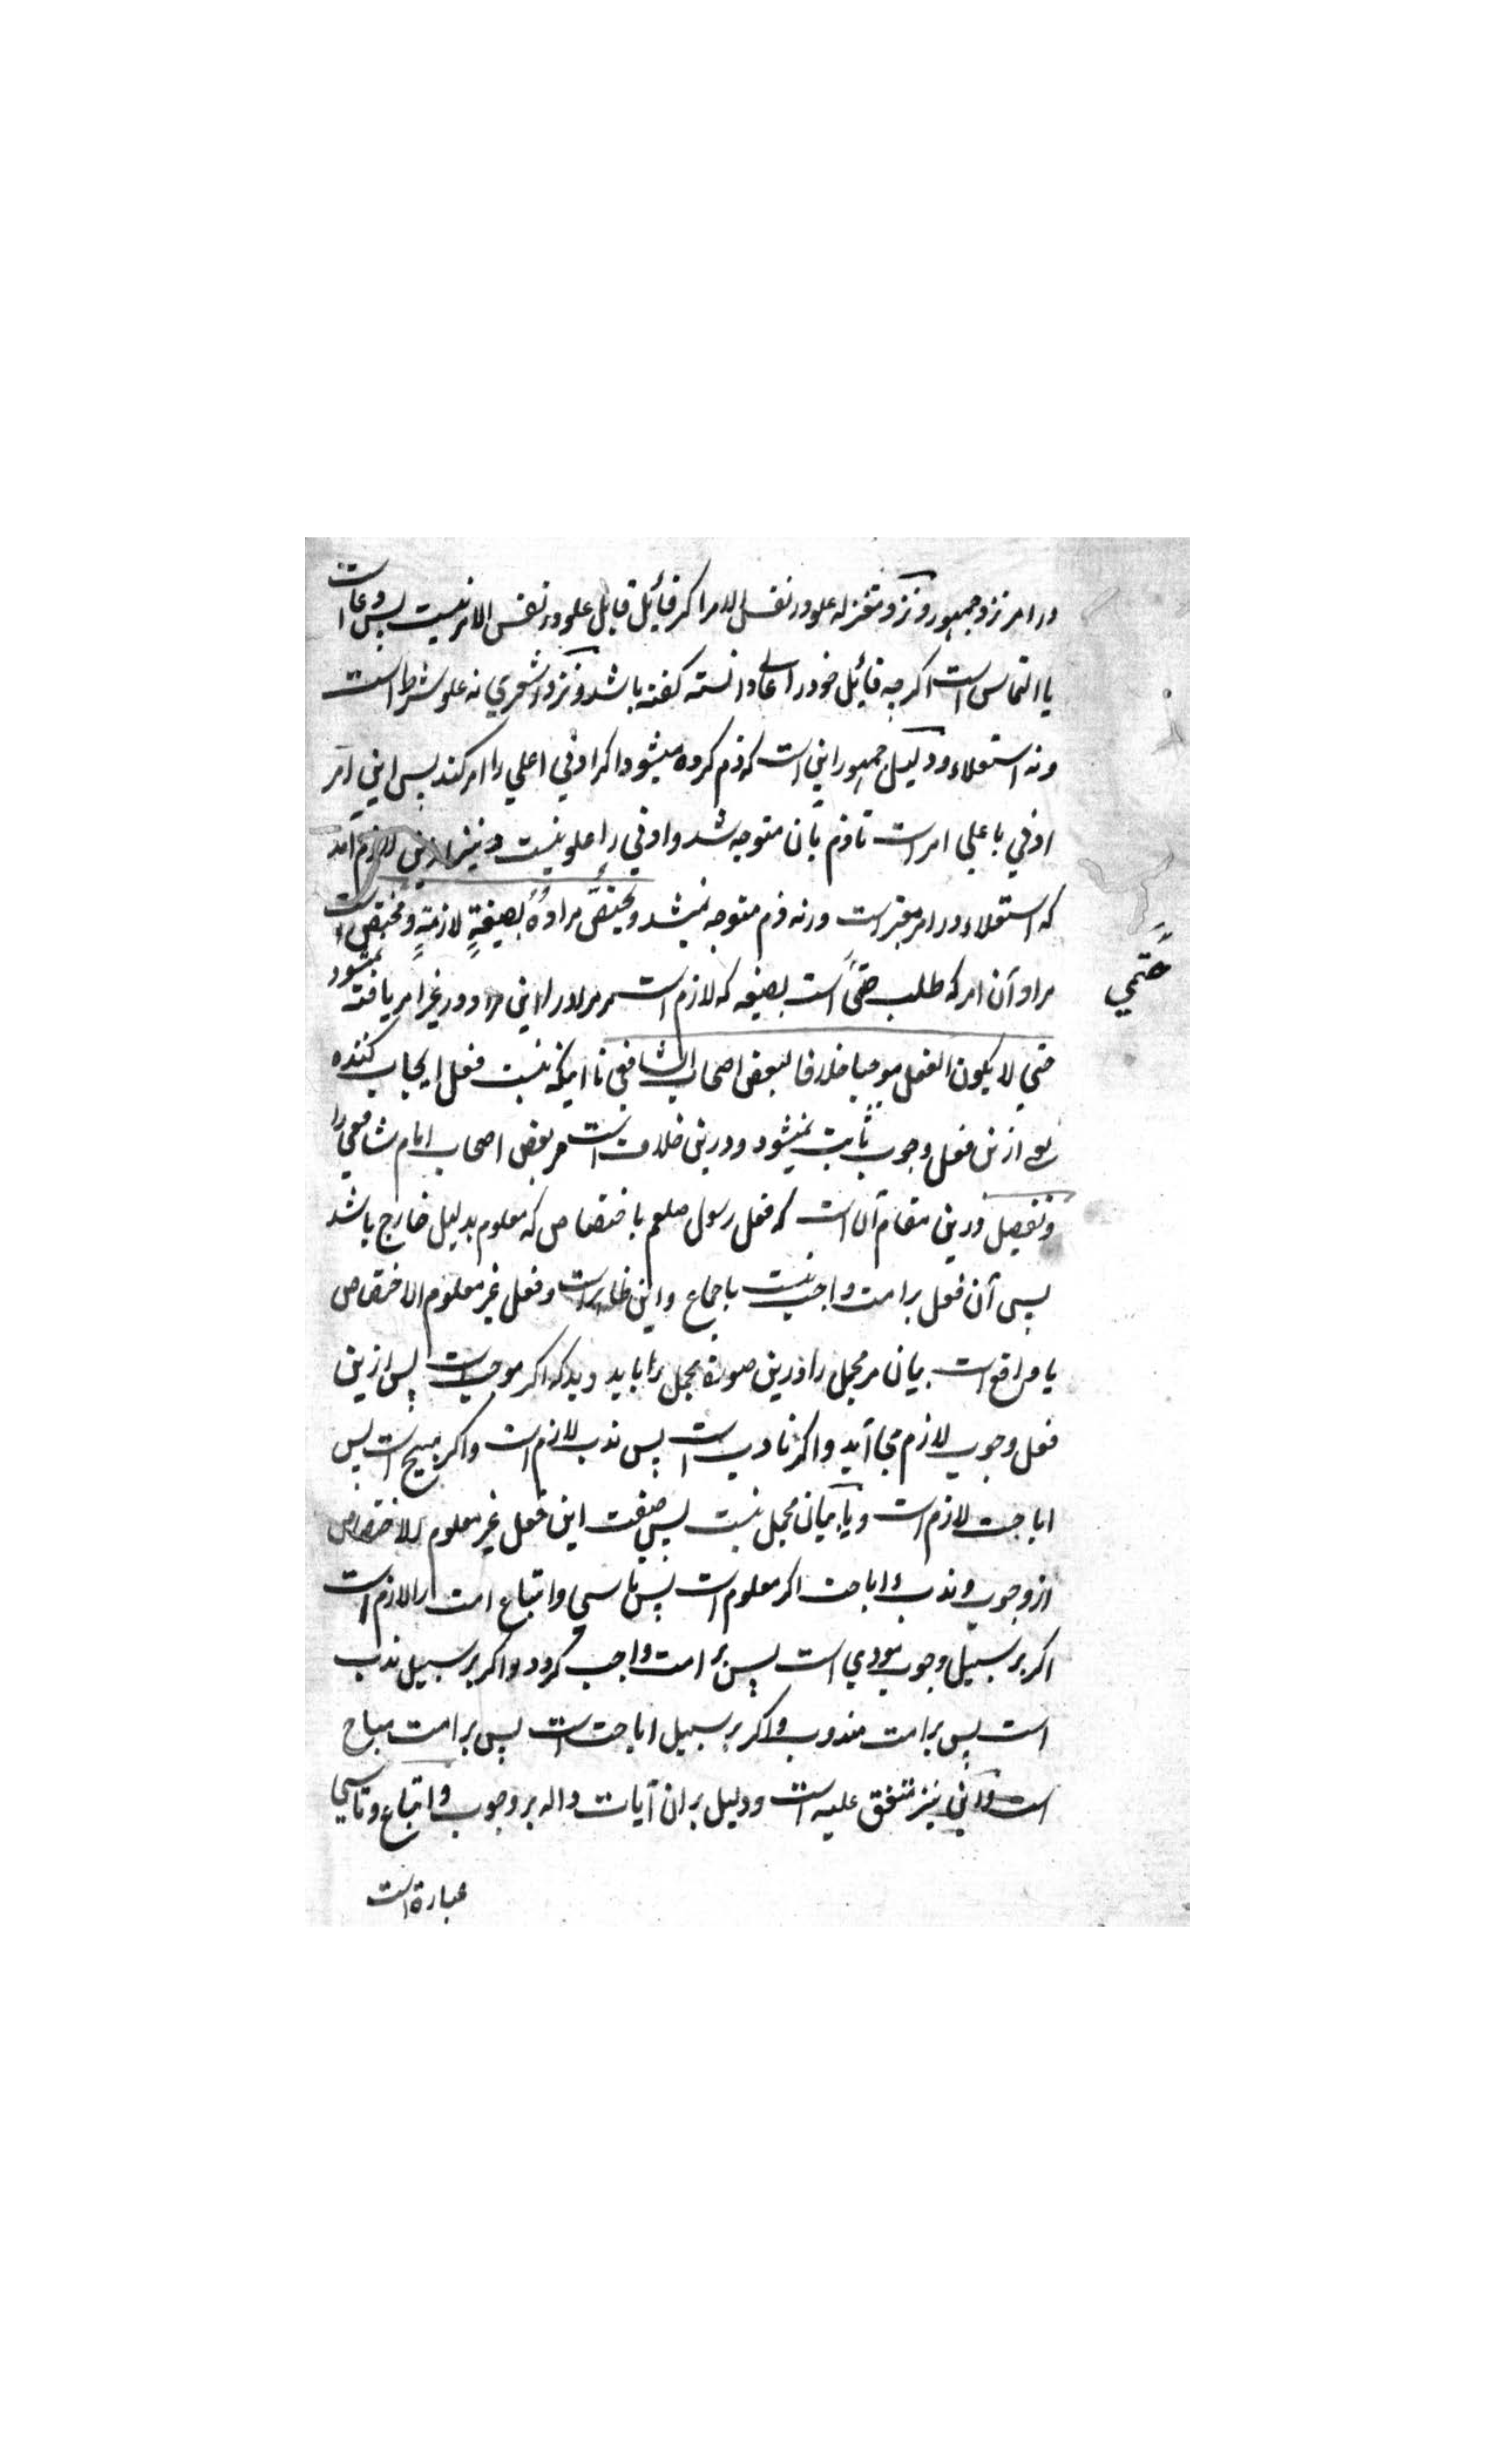 در امر نزد جمهور و نزد معتزله علو در نفس الامر اکر قائل قابل علو در نفس الامر نیست پس دعا است
یا التماس است اکر چه قائل خود را عالی دانسته کفته باشد و نزد اشعری نه علو شرط است
و نه استعلاء و دلیل جمهور این است که ذم کرده میشود اکر ادنی اعلی را امر کند پس این امر
ادنی باعلی امر است تا ذم بآن متوجه شد و ادنی را علو نیست و نیز ازین لازم آمد
که استعلاء در امر معتبر است ورنه ذم متوجه نمیشد و یختصّ مرادُهُ بصیغةٍ لازمةٍ و مختص است
مراد آن امر که طلب حتمی است بصیغه که لازم است مر مراد را این مراد در غیر امر یافته نمیشود
حتمی
حتی لا یکون الفعل موجبا خلافا لبعض اصحاب الشافعی تا اینکه نیست فعل ایجاب کننده
یعنی از من فعل وجوب ثابت نمیشود و درین خلاف است مر بعض اصحاب امام شافعی را
و تفصیل درین مقام آن است که فعل رسول صلعم باختصاص که معلوم بدلیل خارج باشد
پس آن فعل بر امت واجب نیست باجماع و این ظاهر است و فعل غیر معلوم الاختصاص
یا واقع است بیان مر مجمل را درین صورة مجمل را باید دید که اکر موجب است پس ازین
فعل وجوب لازم می آید و اکر نادب است پس ندب لازم است و اکر مبیح است پس
اباحت لازم است و یا بیان مجمل نیست پس صفت این فعل غیر معلوم الاختصاص
از وجوب و ندب و اباحت اکر معلوم است پس تاسی و اتباع امت را لازم است
اکر بر سبیل وجوب مودی است پس بر امت واجب کردد و اکر بر سبیل ندب
است پس بر امت مندوب و اکر بر سبیل اباحت است پس بر امت مباح
است و این نیز متفق علیه است و دلیل بر ان آیات داله بر وجوب و اتباع و تاسی
عبارة است